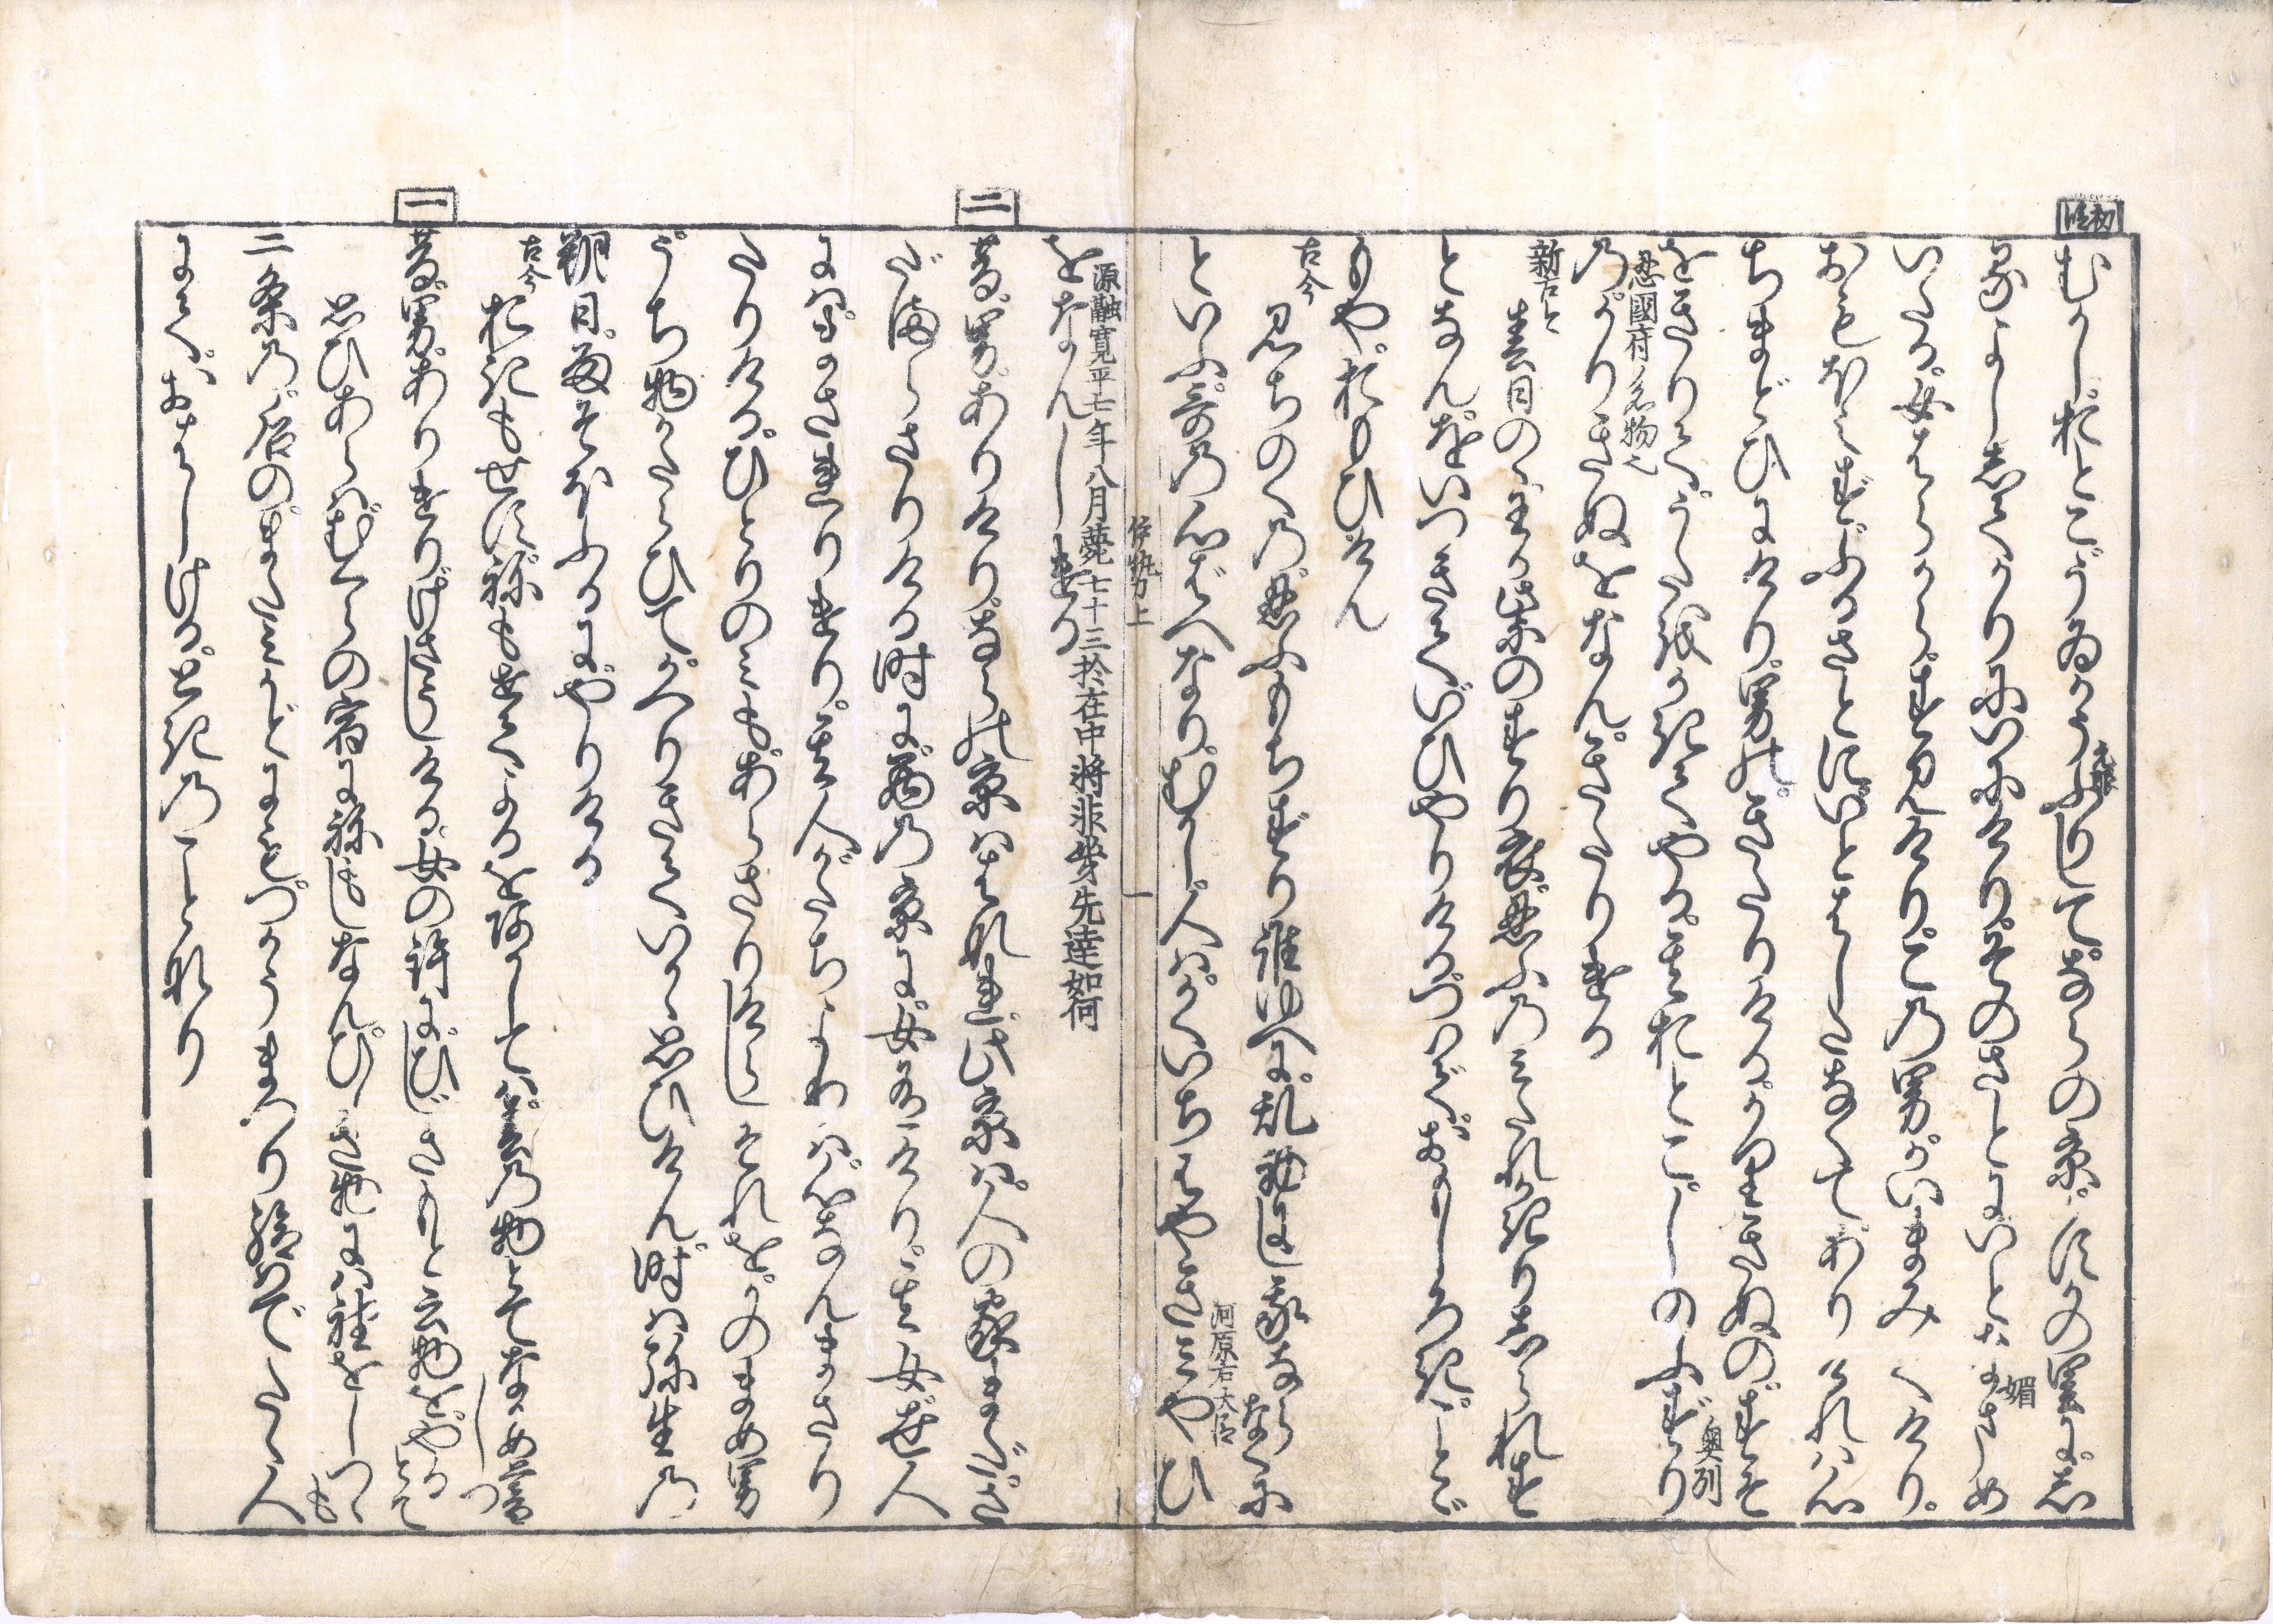 初段
むかし。おとこ。うゐかうふりして。ならの京。かすかの里に。し
元服
るよししてかりにいにけり。そのさとにいとなまめ
媚
いたる。女はらから。すみけり。この男。かいまみてけり。
おもほえず。ふるさとに。いとはしたなくて。ありければ心
ちまどひにけり。男の。きたりける。かりきぬの。すそ
をきりて。うたをかきてやる。そのおとこ。しのふずり
奥列
忍國府ノ名物也
の。かりきぬをなん。きたりける
新古今
春日のゝ若紫のすり衣忍ふのみたれ限りしられす
となん。をいつきて。いひやりける。ついで。おもしろき。ことゞ
もや。おもひけん
古今
みちのくの忍ふもちずり誰ゆへに乱初にし我ならなくに
といふ。哥の心ばへなり。むかし。人は。かくいちはやきみやひ
河原右大臣
伊勢上 一
源融寛平七年八月薨七十三於在中将非 先達如何
をなんしける
二
昔。男。ありけり。ならの京ははなれ此京は。人の家まださ
だまらさりける時に。西の京に。女有けり。その女。世人
には。まされりけり。その人かたちよりは。心なんまさり
たりける。ひとりのみも。あらさりけらしそれを。かのまめ男
うち物かたらひて。かへりきていかゝ思ひけん。時は弥生の
朔日。雨そほふるに。やりける
古今
おきもせすねもせてよるを明しては春の物とてなかめ暮しつ
一
昔。男。ありけり。けさうしける。女の許に。ひじきもと云物を。やるとて
思ひあらばむくらの宿にねもしなんひしき物には袖をしつゝも
二条の。后の。またみかどにも。つかうまつり給はで。たゝ人
にて。おはしける。ときのことなり